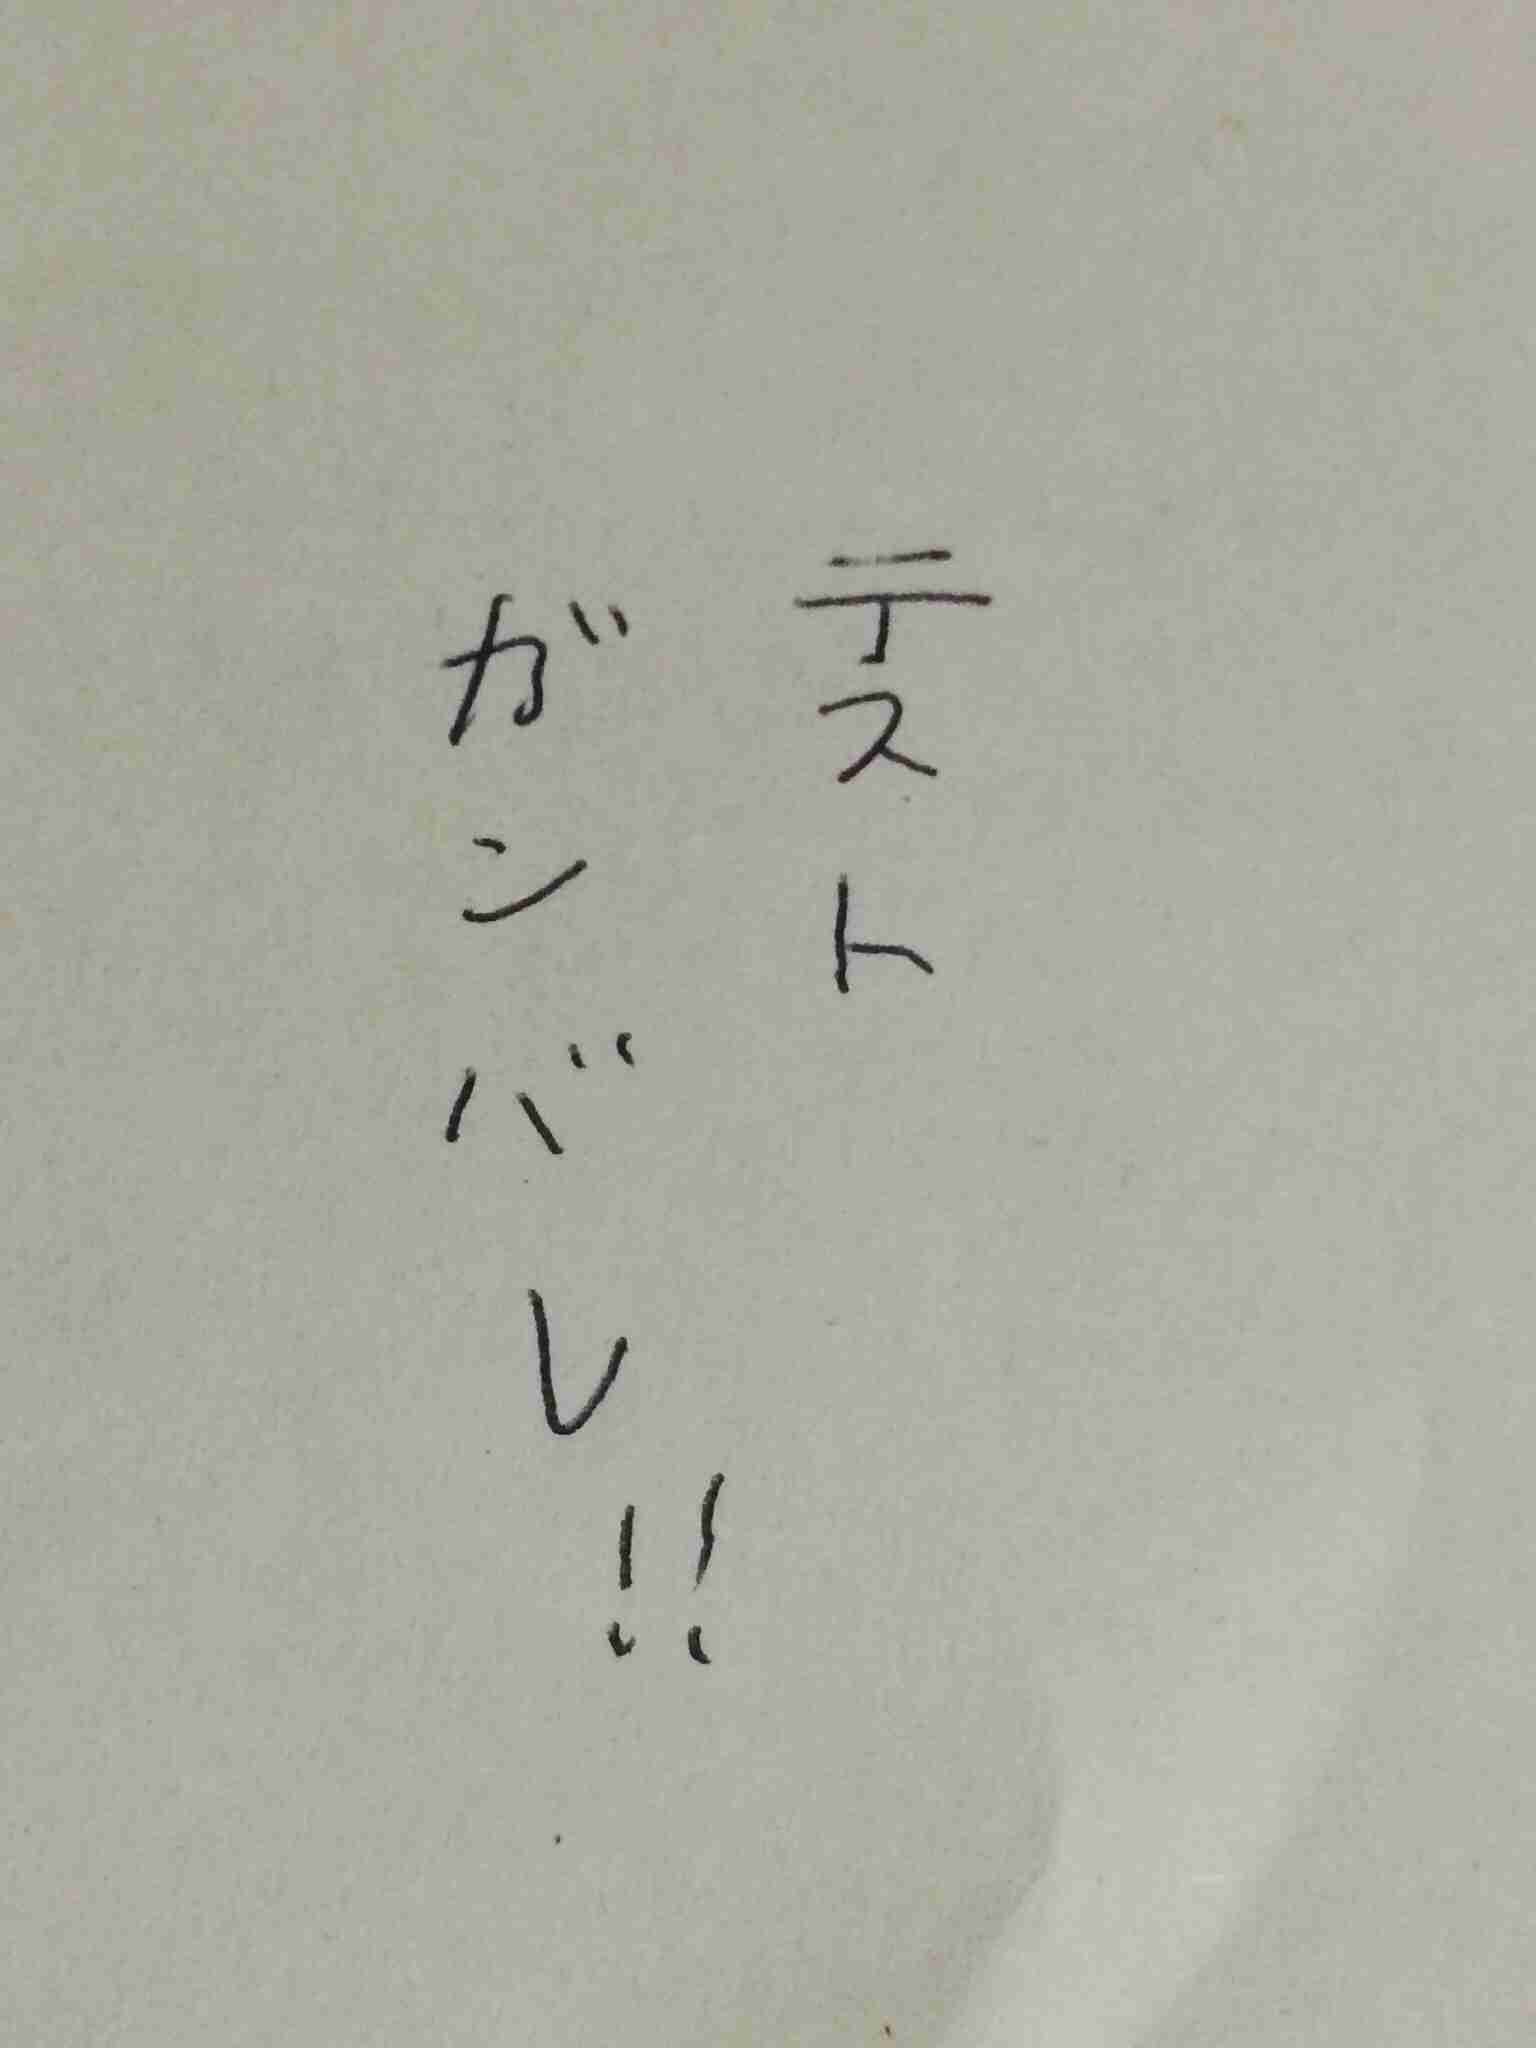 テスト
ガンバレ!!